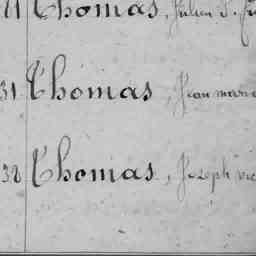 Thomas, Julien J.
31 Thomas, Jean marie
32 Thomas, Joseph